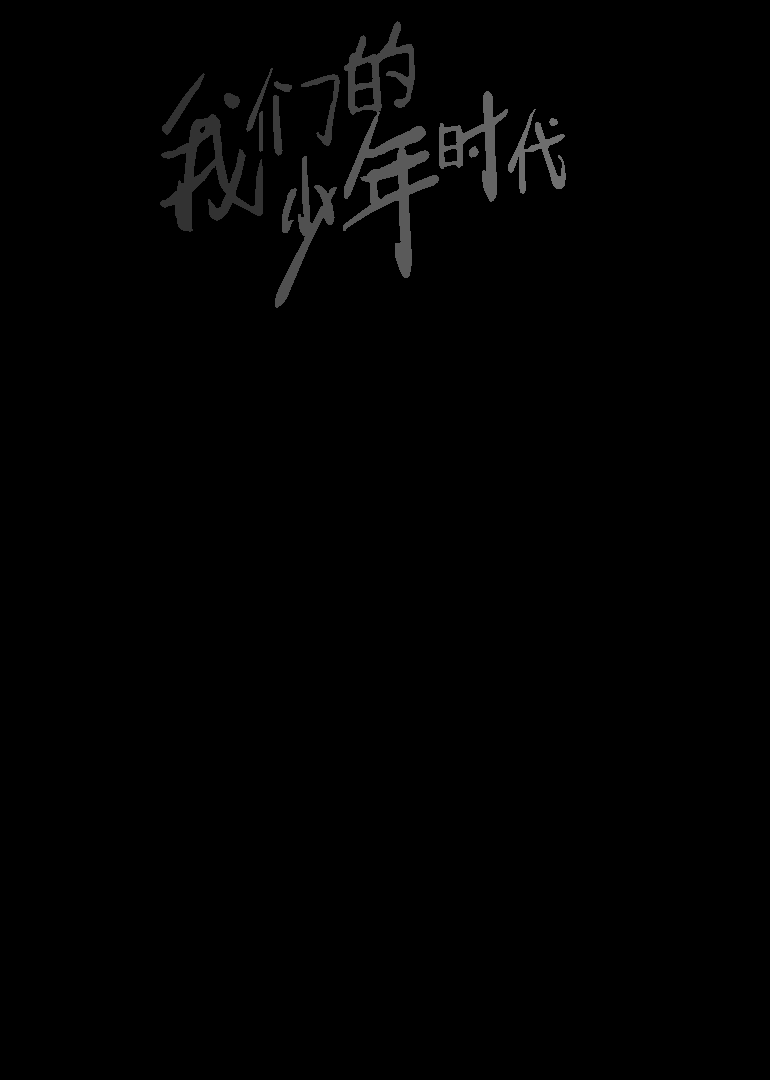 我们的
少年时代